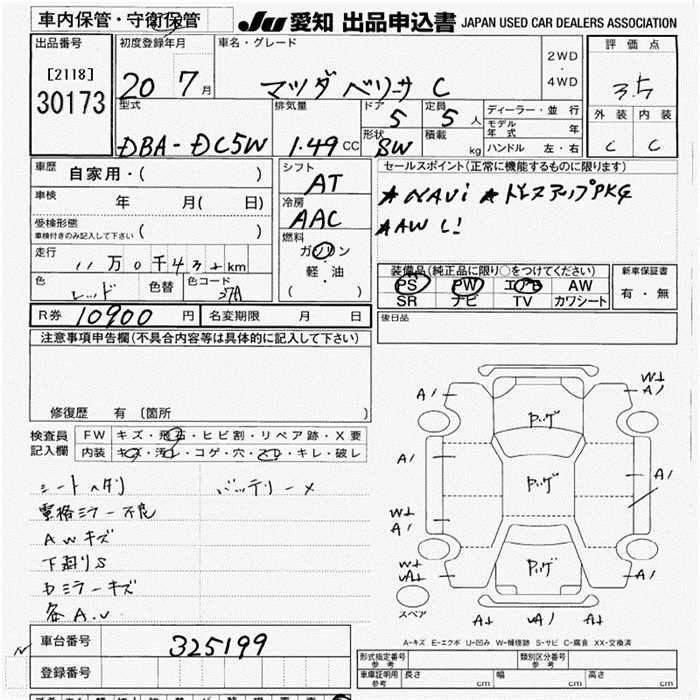 車内保管・守衛保管
JU 愛知 出品申込書 JAPAN USED CAR DEALERS ASSOCIATION
出品番号
[2118]
30173
初度登録年月
20 7月
車名・グレード
マツダ ベリーサ C
2WD
・
4WD
評価点
3.5
外装 内装
C C
型式
DBA-DC5W
排気量
1.49 CC
ドア
5
定員
5人
形状
SW
積載
kg
ディーラー・並行
モデル年式 年
ハンドル 左・右
車歴
自家用・( )
車検
年 月( 日)
受検形態
車検付きのみ記入して下さい ( )
走行
11万0千4 km
色
レッド
色替
色コード
27A
シフト
AT
冷房
AAC
燃料
ガソリン
・
軽・油
( )
セールスポイント(正常に機能するものに限ります)
★NAVi ★ドレスアップPKG
★AW
装備品(純正品に限り○をつけてください)
PS PW エアB AW
SR ナビ TV カワシート
新車保証書
有・無
R券 10900 円
名変期限 月 日
後日品
注意事項申告欄(不具合内容等は具体的に記入して下さい)
修復歴 有〔箇所 〕
検査員
記入欄
FW キズ・飛石・ヒビ割・リペア跡・X要
内装 キズ・汚レ・コゲ・穴・スレ・キレ・破レ
シートヘタリ バッテリーメ
電格ミラー不良
AWキズ
下廻りS
ミラーキズ
各A.U
A1
W上
A1
Pッゲ
A1
Pッゲ
A1
W上
A1
Pッゲ
W上
UA上
A1
スペア
A上 UA1 A1
A-キズ E-エクボ U-凹み W-補修跡 S-サビ C-腐食 XX-交換済
車台番号
325199
登録番号
形式指定番号
参考
類別区分番号
参考
車庫証明用
参考
長さ cm 幅 cm 高さ cm